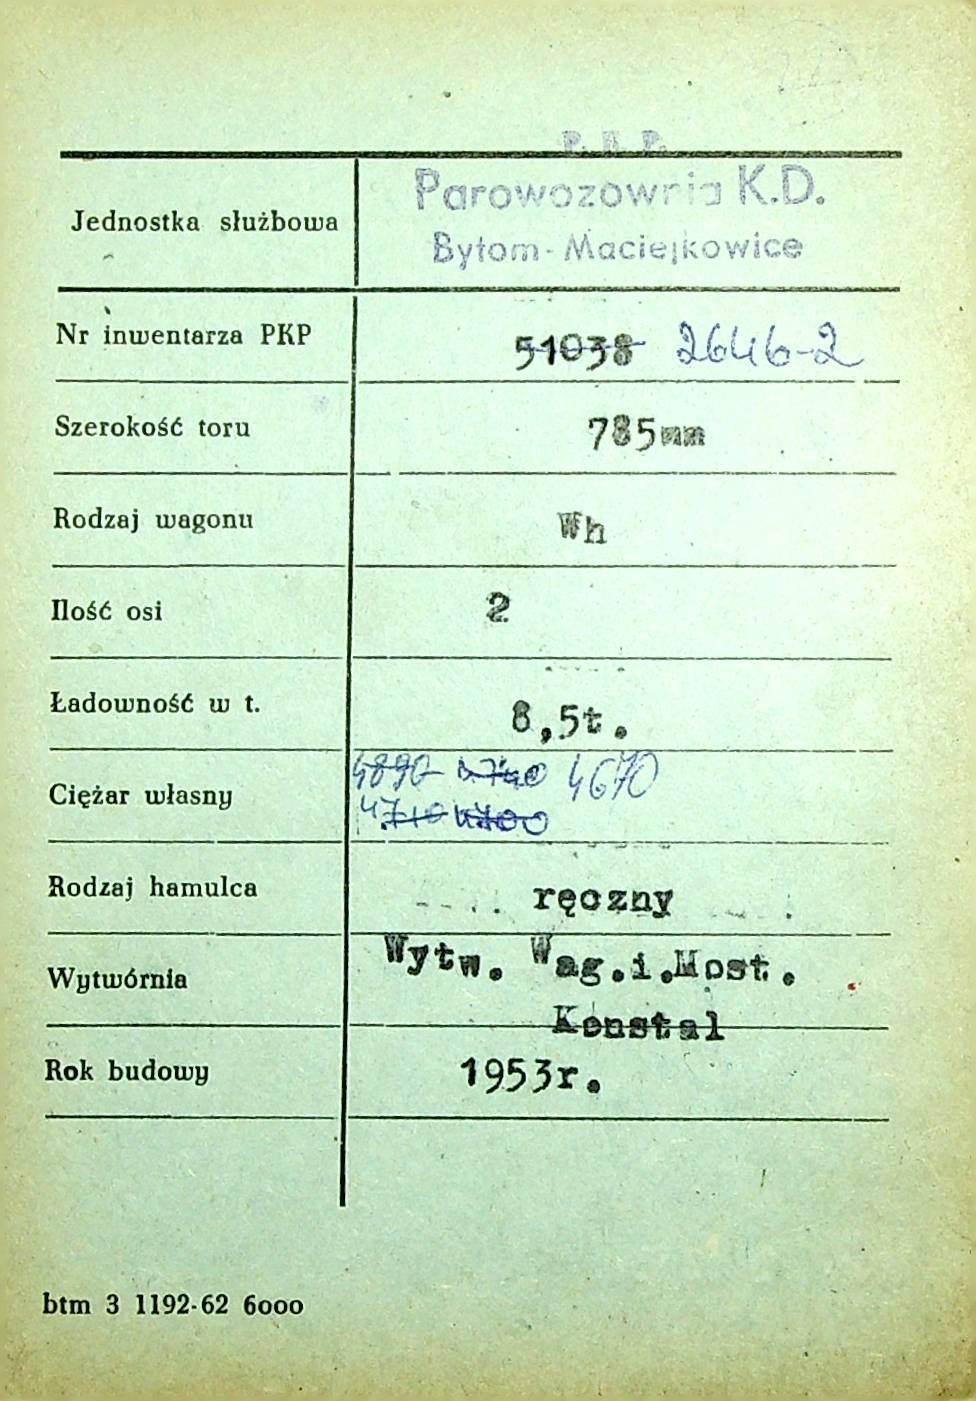 P. K. P.
Jednostka służbowa Parowozownia K.D.
Bytom-Maciejkowice
Nr inwentarza PKP 51038 2646-2
Szerokość toru 785mm
Rodzaj wagonu Wh
Ilość osi 2
Ładowność w t. 8,5t.
Ciężar własny 4890 4670
4.710 4.700
Rodzaj hamulca ręczny
Wytwórnia Wytw. Wag.i.Most.
Konstal
Rok budowy 1953r.
btm 3 1192-62 6000